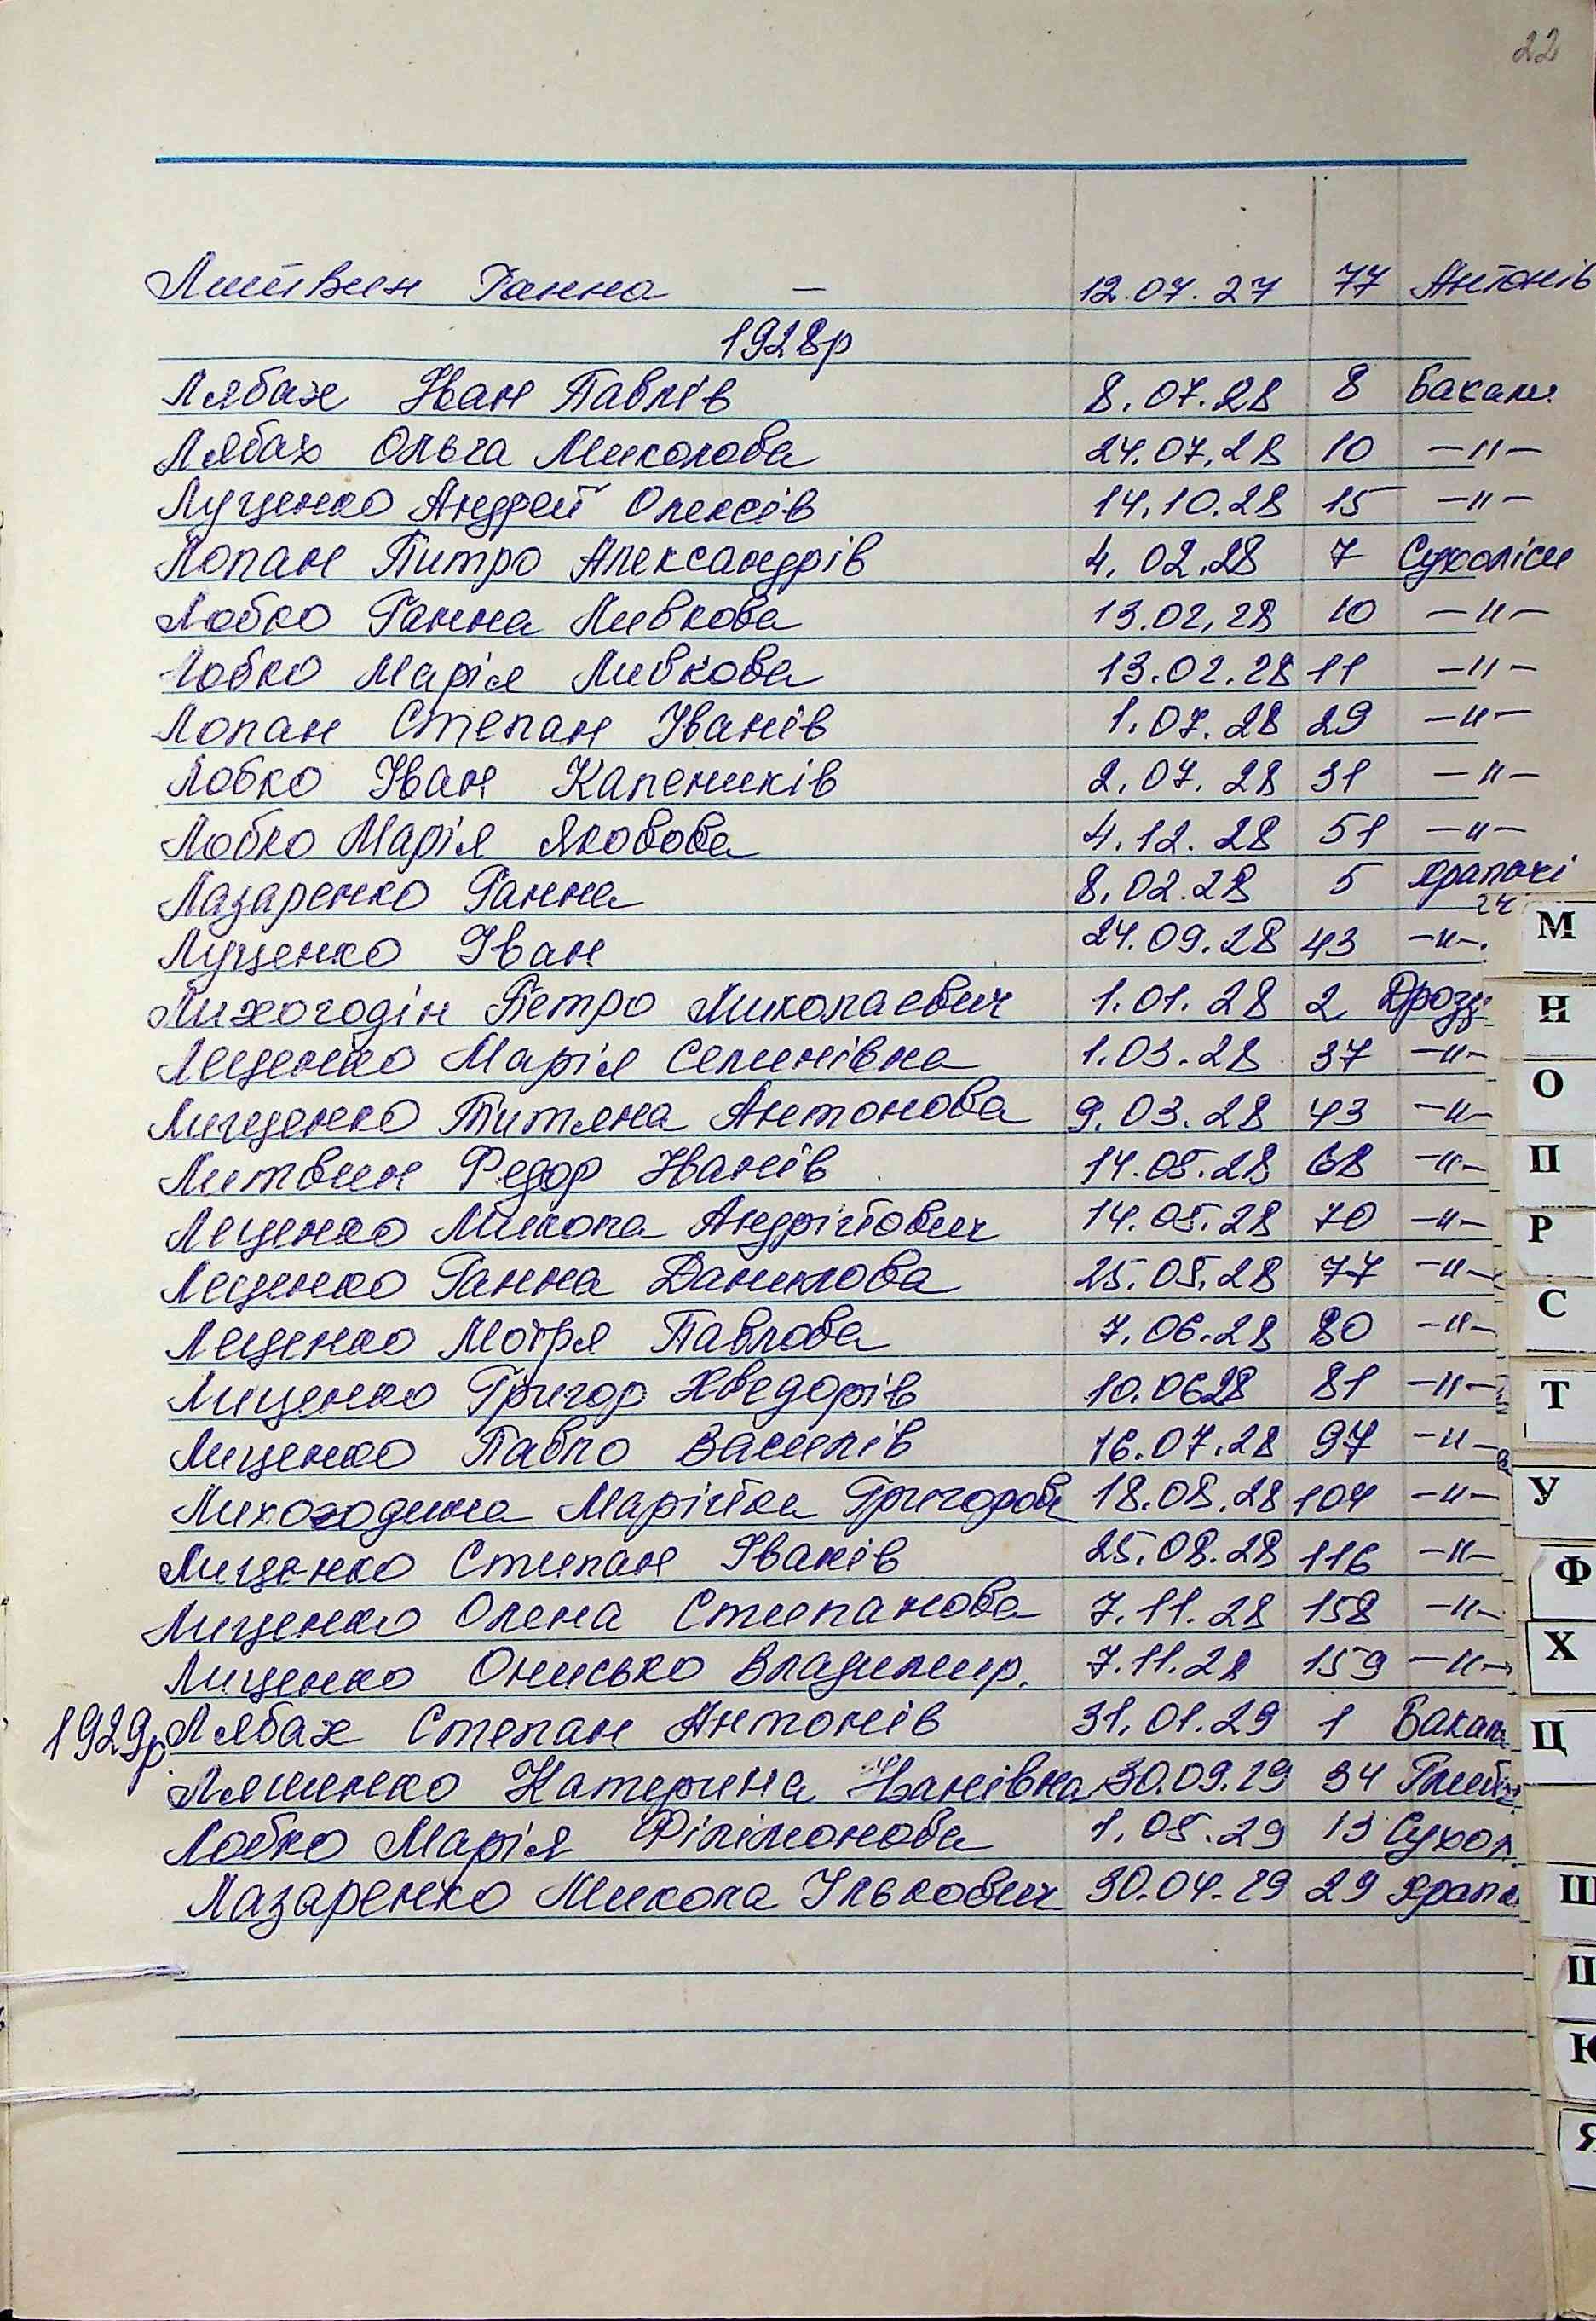 22
Литвин Ганна — 12.07.27 77 Антонів
1928р
Лябах Іван Павлів 8.07.28 8 Бакали
Лябах Ольга Миколова 24.07.28 10 —"—
Луценко Андрей Олексів 14.10.28 15 —"—
Лопан Питро Александрів 4.02.28 7 Сухоліси
Лобко Ганна Ливкова 13.02.28 10 —"—
Лобко Марія Ливкова 13.02.28 11 —"—
Лопан Степан Іванів 1.07.28 29 —"—
Лобко Іван Калеників 2.07.28 31 —"—
Лобко Марія Яковова 4.12.28 51 —"—
Лазаренко Ганна 8.02.28 5 Храпачі
Луценко Іван 24.09.28 43 —"—
Лихогодін Петро Миколаевич 1.01.28 2 Дрозд
Леценко Марія Семинівна 1.03.28 37 —"—
Лищенко Титяна Антонова 9.03.28 43 —"—
Литвин Федор Іванів 14.05.28 68 —"—
Леценко Микола Андрійович 14.05.28 70 —"—
Леценко Ганна Данилова 25.05.28 77 —"—
Леценко Мотря Павлова 7.06.28 80 —"—
Лиценко Григор Хведорів 10.0628 81 —"—
Лиценко Павло Василів 16.07.28 97 —"—
Лихогодина Марійка Григоров 18.08.28 104 —"—
Лиценко Стипан Іванів 25.08.28 116 —"—
Лиценко Олена Стипанова 7.11.28 158 —"—
Лиценко Онисько Владимир. 7.11.28 159 —"—
1929р Лябах Степан Антонів 31.01.29 1 Бакал
Ляшенко Катерина Іванівна 30.09.29 34 Глиб
Лобко Марія Філімонова 1.05.29 13 Сухол.
Лазаренко Микола Ількович 30.04.29 29 Храпа
М
Н
О
П
Р
С
Т
У
Ф
Х
Ц
Ш
Ю
Я